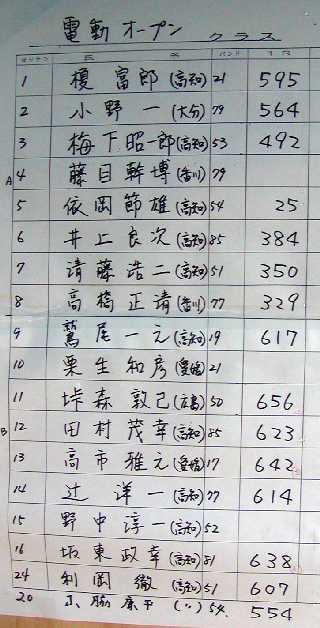 電動オープン クラス
ゼッケン 氏 名 バンド
1 榎富郎 (高知) 21 595
2 小野一 (大分) 79 564
3 梅下昭一郎 (高知) 53 492
A 4 藤目幹博 (香川) 79
5 依岡節雄 (高知) 54 25
6 井上良次 (高知) 85 384
7 清藤浩二 (高知) 51 350
8 高橋正清 (香川) 77 329
9 鷲尾一元 (高知) 19 617
10 栗生和彦 (愛媛) 21
11 森敦己 (広島) 50 656
B 12 田村茂幸 (高知) 85 623
13 高市雅元 (愛媛) 17 642
14 辻洋一 (高知) 77 614
15 野中淳一 (高知) 52
16 坂東政幸 (高知) 81 638
24 利岡徹 (高知) 51 607
20 脇康平 (〃) 54 554